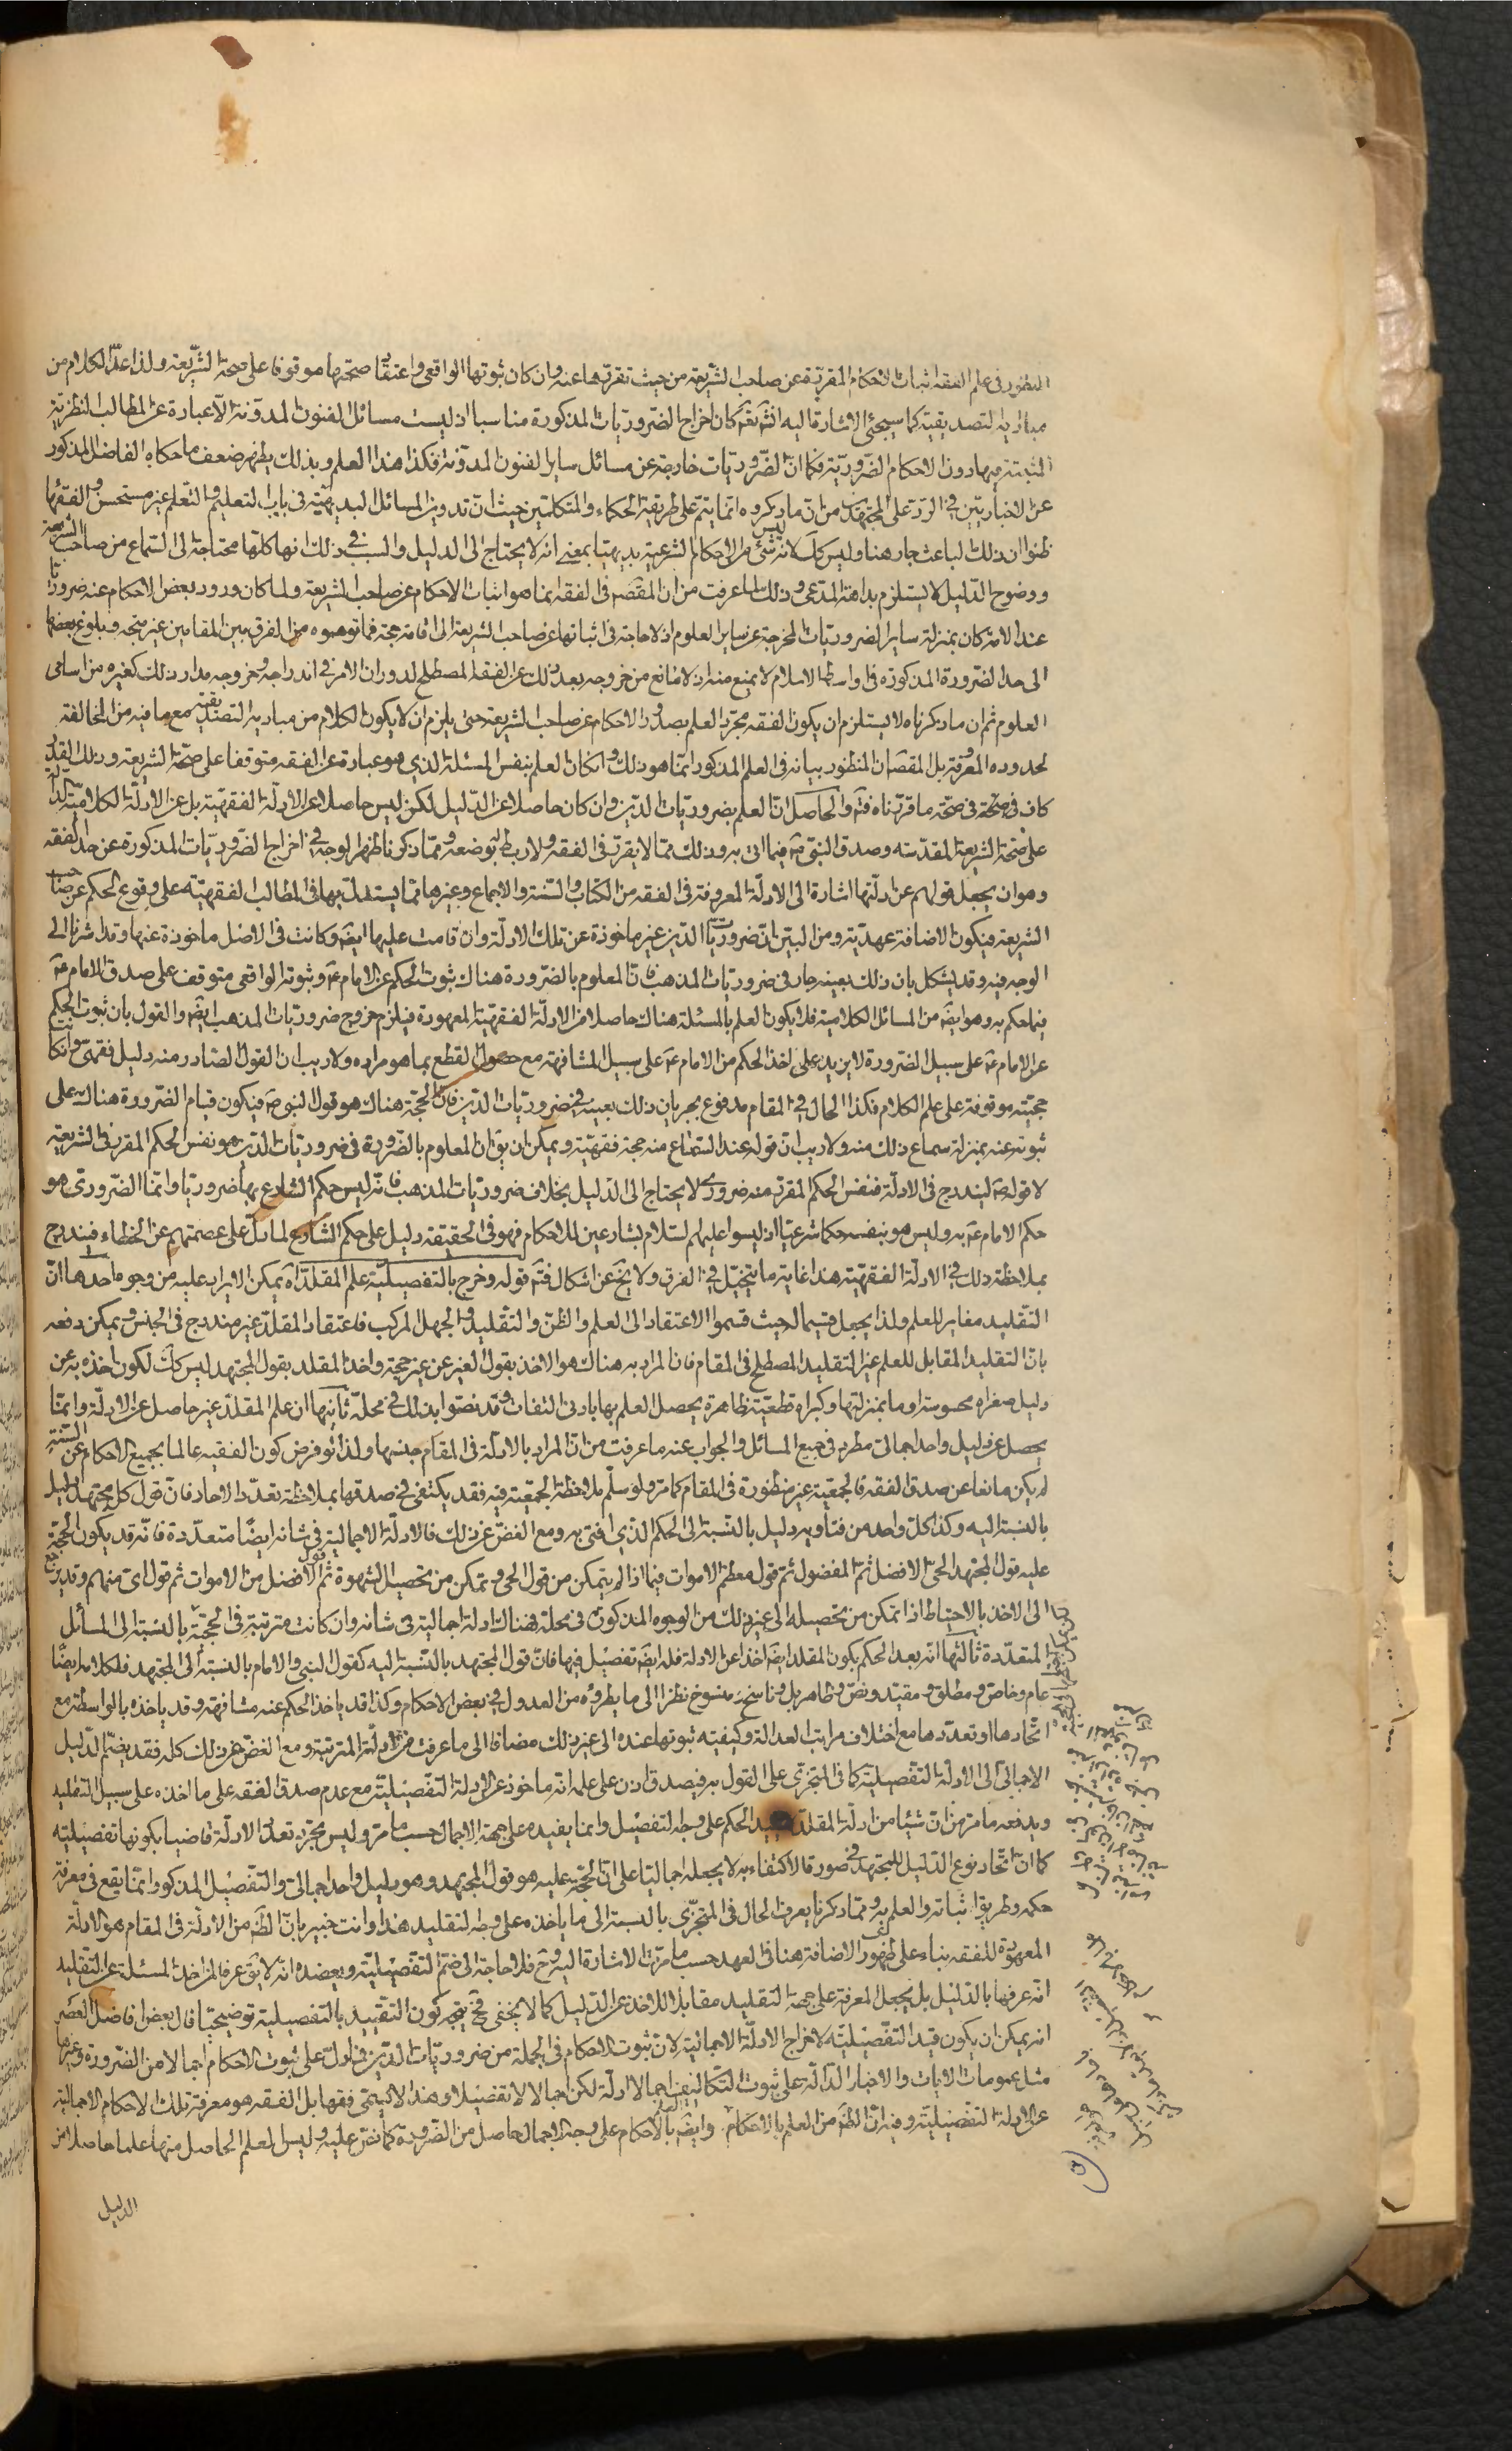 المنظور فى علم الفقه اثبات الاحكام المقررة عن صاحب الشريعة من حيث تقررها عنه وان كان ثبوتها الواقعى واعتقاد صحتها موقوفا على صحة الشريعة ولذا عد الكلام من
مباديه التصديقية كما سيجئ الاشارة اليه انش تع كان اخراج الضروريات المذكورة مناسبا اذ ليست مسائل الفنون المدونة الا عبارة عن المطالب النظرية
المثبتة فيها دون الاحكام الضرورية فكما ان الضروريات خارجة عن مسائل ساير الفنون المدونة فكذا هذا العلم وبذلك يظهر ضعف ما حكاه الفاضل المذكور
عن الاخباريين فى الرد على المجتهدين من ان ما ذكروه انما يتم على طريقة الحكماء والمتكلمين حيث ان تدوين المسائل البديهية فى باب التعليم والتعلم غير مستحسن والفقهاء
ظنوا ان ذلك الباعث جار هنا وليس كك لانه ليس شئ من الاحكام الشرعية بديهيا بمعنى انه لا يحتاج الى الدليل والسبب فى ذلك انها كلها محتاجة الى السماع من صاحب الشريعة
ووضوح الدليل لا يستلزم بداهة المدعى وذلك لما عرفت من ان المقصود فى الفقه انما هو اثبات الاحكام عن صاحب الشريعة ولما كان ورود بعض الاحكام عنه ضروريا
عند الامة كان بمنزلة ساير الضروريات المخرجة عن ساير العلوم اذ لا حاجة فى اثباتها عن صاحب الشريعة الى اقامة حجة فما توهموه من الفرق بين المقامين غير متجه وبلوغ بعضها
الى حد الضرورة المذكورة فى اواسط الاسلام لا يمنع منه اذ لا مانع من خروجه بعد ذلك عن الفقه المصطلح لدوران الامر فى اندراجه وخروجه مدار ذلك كغيره من اسامى
العلوم ثم ان ما ذكرناه لا يستلزم ان يكون الفقه مجرد العلم بصدور الاحكام عن صاحب الشريعة حتى يلزم ان لا يكون الكلام من مباديه التصديقية مع ما فيه من المخالفة
لحدوده المعروفة بل المقصود ان المنظور بيانه فى العلم المذكور انما هو ذلك وان كان العلم بنفس المسئلة الذي هو عبارة عن الفقه متوقفا على صحة الشريعة وذلك القدر
كاف فى صحة ما قررناه فتم والحاصل ان العلم بضروريات الدين وان كان حاصلا عن الدليل لكن ليس حاصلا عن الادلة الفقهية بل عن الادلة الكلامية الدالة
على صحة الشريعة المقدسة وصدق النبى ص فيما اتى به وذلك مما لا يقرر فى الفقه ولا ربط له بوضعه ومما ذكرنا ظهر الوجه فى اخراج الضروريات المذكورة عن حد الفقه
وهو ان يجعل قولهم عن ادلتها اشارة الى الادلة المعروفة فى الفقه من الكتاب والسنة والاجماع وغيرها مما يستدل بها فى المطالب الفقهية على وقوع الحكم عن صاحب
الشريعة فيكون الاضافة عهدية ومن البين ان ضروريات الدين غير ماخوذة عن تلك الادلة وان قامت عليها ايضا وكانت فى الاصل ماخوذة عنها وقد اشرنا الى
الوجه فيه وقد يشكل بان ذلك بعينه جار فى ضروريات المذهب فان المعلوم بالضرورة هناك ثبوت الحكم عن الامام ع وثبوته الواقعى متوقف على صدق الامام ع
فيما حكم به وهو ايضا من المسائل الكلامية فلا يكون العلم بالمسئلة هناك حاصلا من الادلة الفقهية المعهودة فيلزم خروج ضروريات المذهب ايضا والقول بان ثبوت الحكم
عن الامام ع على سبيل الضرورة لا يزيد على اخذ الحكم من الامام ع على سبيل المشافهة مع حصول القطع بما هو مراده ولا ريب ان القول الصادر منه دليل فقهى وان كانت
حجيته موقوفة على علم الكلام فكذا الحال فى المقام مدفوع بجريان ذلك بعينه فى ضروريات الدين فان الحجة هناك هو قول النبى ص فيكون قيام الضرورة هناك على
ثبوته عنه بمنزلة سماع ذلك منه ولا ريب ان قوله عند السماع منه حجة فقهية ويمكن ان يق ان المعلوم بالضرورة فى ضروريات الدين هو نفس الحكم المقرر فى الشريعة
لا قوله ص ليندرج فى الادلة فنفس الحكم المقرر منه ضروري لا يحتاج الى الدليل بخلاف ضروريات المذهب فانه ليس حكم الشارع بها ضروريا وانما الضروري هو
حكم الامام ع به وليس هو بنفسه حكما شرعيا اذ ليسوا عليهم السلام بشارعين للاحكام فهو فى الحقيقة دليل على حكم الشارع لما دل على عصمتهم عن الخطاء فيندرج
بملاحظة ذلك فى الادلة الفقهية هذا غاية ما يتخيل فى الفرق ولا يخ عن اشكال فتم قوله وخرج بالتفصيلية علم المقلد اه يمكن الايراد عليه من وجوه احدها ان
التقليد مغاير للعلم ولذا يجعل قسيما له حيث قسموا الاعتقاد الى العلم والظن والتقليد والجهل المركب فاعتقاد المقلد غير مندرج فى الجنس ويمكن دفعه
بان التقليد المقابل للعلم غير التقليد المصطلح فى المقام فان المراد به هناك هو الاخذ بقول الغير عن غير حجة واخذ المقلد بقول المجتهد ليس كك لكون اخذه به عن
دليل صغراه محسوسة او ما بمنزلتها وكبراه قطعية ظاهرة يحصل العلم بها بادنى التفات وقد نصوا بذلك فى محله ثانيها ان علم المقلد غير حاصل عن الادلة وانما
يحصل عن دليل واحد اجمالى مطرد فى جميع المسائل والجواب عنه ما عرفت من ان المراد بالادلة فى المقام جنسها ولذا لو فرض كون الفقيه عالما بجميع الاحكام عن السنة
لم يكن مانعا عن صدق الفقه فالجمعية غير منظورة فى المقام كما مر ولو سلم ملاحظة الجمعية فيه فقد يكتفى فى صدقها بملاحظة تعدد الاحاد فان قول كل مجتهد دليل
بالنسبة اليه وكذا كل واحد من فتاويه دليل بالنسبة الى الحكم الذي افتى به ومع الغض عن ذلك فالادلة الاجمالية فى شانه ايضا متعددة فانه قد يكون الحجة
عليه قول المجتهد الحى الافضل ثم المفضول ثم قول معظم الاموات فيما اذا لم يتمكن من قول الحى وتمكن من تحصيل الشهرة ثم قول الافضل من الاموات ثم قول اى منهم وقد يرجع
الى الاخذ بالاحتياط اذا تمكن من تحصيله الى غير ذلك من الوجوه المذكورة فى محله فهناك ادلة اجمالية فى شانه وان كانت مترتبة فى الحجية بالنسبة الى المسائل
المتعددة ثالثها انه بعد الحكم بكون المقلد ايضا اخذا عن الادلة فله ايضا تفصيل فيها فان قول المجتهد بالنسبة اليه كقول النبى والامام بالنسبة الى المجتهد فلكلامه ايضا
عام وخاص ومطلق ومقيد ونص وظاهر بل وناسخ ومنسوخ نظرا الى ما يطروه من العدول فى بعض الاحكام وكذا قد ياخذ الحكم عنه مشافهة وقد ياخذه بالواسطة مع
اتحادها او تعددها مع اختلاف مراتب العدالة وكيفية ثبوتها عنده الى غير ذلك مضافا الى ما عرفت من الادلة المترتبة ومع الغض عن ذلك كله فقد يضم الدليل
الاجمالى الى الادلة التفصيلية كما فى المتجزى على القول به فيصدق اذن على علمه انه ماخوذ عن الادلة التفصيلية مع عدم صدق الفقه على ما اخذه على سبيل التقليد
ويدفعه ما مر من ان شيئا من ادلة المقلد لا يفيد الحكم على وجه التفصيل وانما يفيده على جهة الاجمال حسب ما مر وليس مجرد تعدد الادلة قاضيا بكونها تفصيلية
كما ان اتحاد نوع الدليل للمجتهد فى صورة الاكتفاء به لا يجعله اجماليا على ان الحجة عليه هو قول المجتهد وهو دليل واحد اجمالى والتفصيل المذكور انما يقع فى معرفة
حكمه وطريق اثباته والعلم به ومما ذكرنا يعرف الحال فى المتجزى بالنسبة الى ما ياخذه على وجه التقليد هذا وانت خبير بان الظ من الادلة فى المقام هو الادلة
المعهودة للفقه بناء على ظهور الاضافة هنا فى العهد حسب ما مرت الاشارة اليه وح فلا حاجة الى ضم التفصيلية ويعضده انه لا يق عرفا لمن اخذ المسئلة عن التقليد
انه عرفها بالدليل بل يجعل المعرفة على جهة التقليد مقابلا للاخذ عن الدليل كما لا يخفى فح يتجه كون التقييد بالتفصيلية توضيحيا قال بعض افاضل العصر
انه يمكن ان يكون قيد التفصيلية لاخراج الادلة الاجمالية لان ثبوت الاحكام فى الجملة من ضروريات الدين فما دل على ثبوت الاحكام اجمالا من الضرورة وغيرها
مثل عمومات الايات والاخبار الدالة على ثبوت التكاليف اجمالا ادلة لكن اجمالا لا تفصيلا وهذا لا يسمى فقها بل الفقه هو معرفة تلك الاحكام الاجمالية
عن الادلة التفصيلية وفيه ان الظ من العلم بالاحكام وايضا بالاحكام على وجه الاجمال حاصل من الضرورة كما نص عليه وليس العلم الحاصل منها علما حاصلا من
الدليل